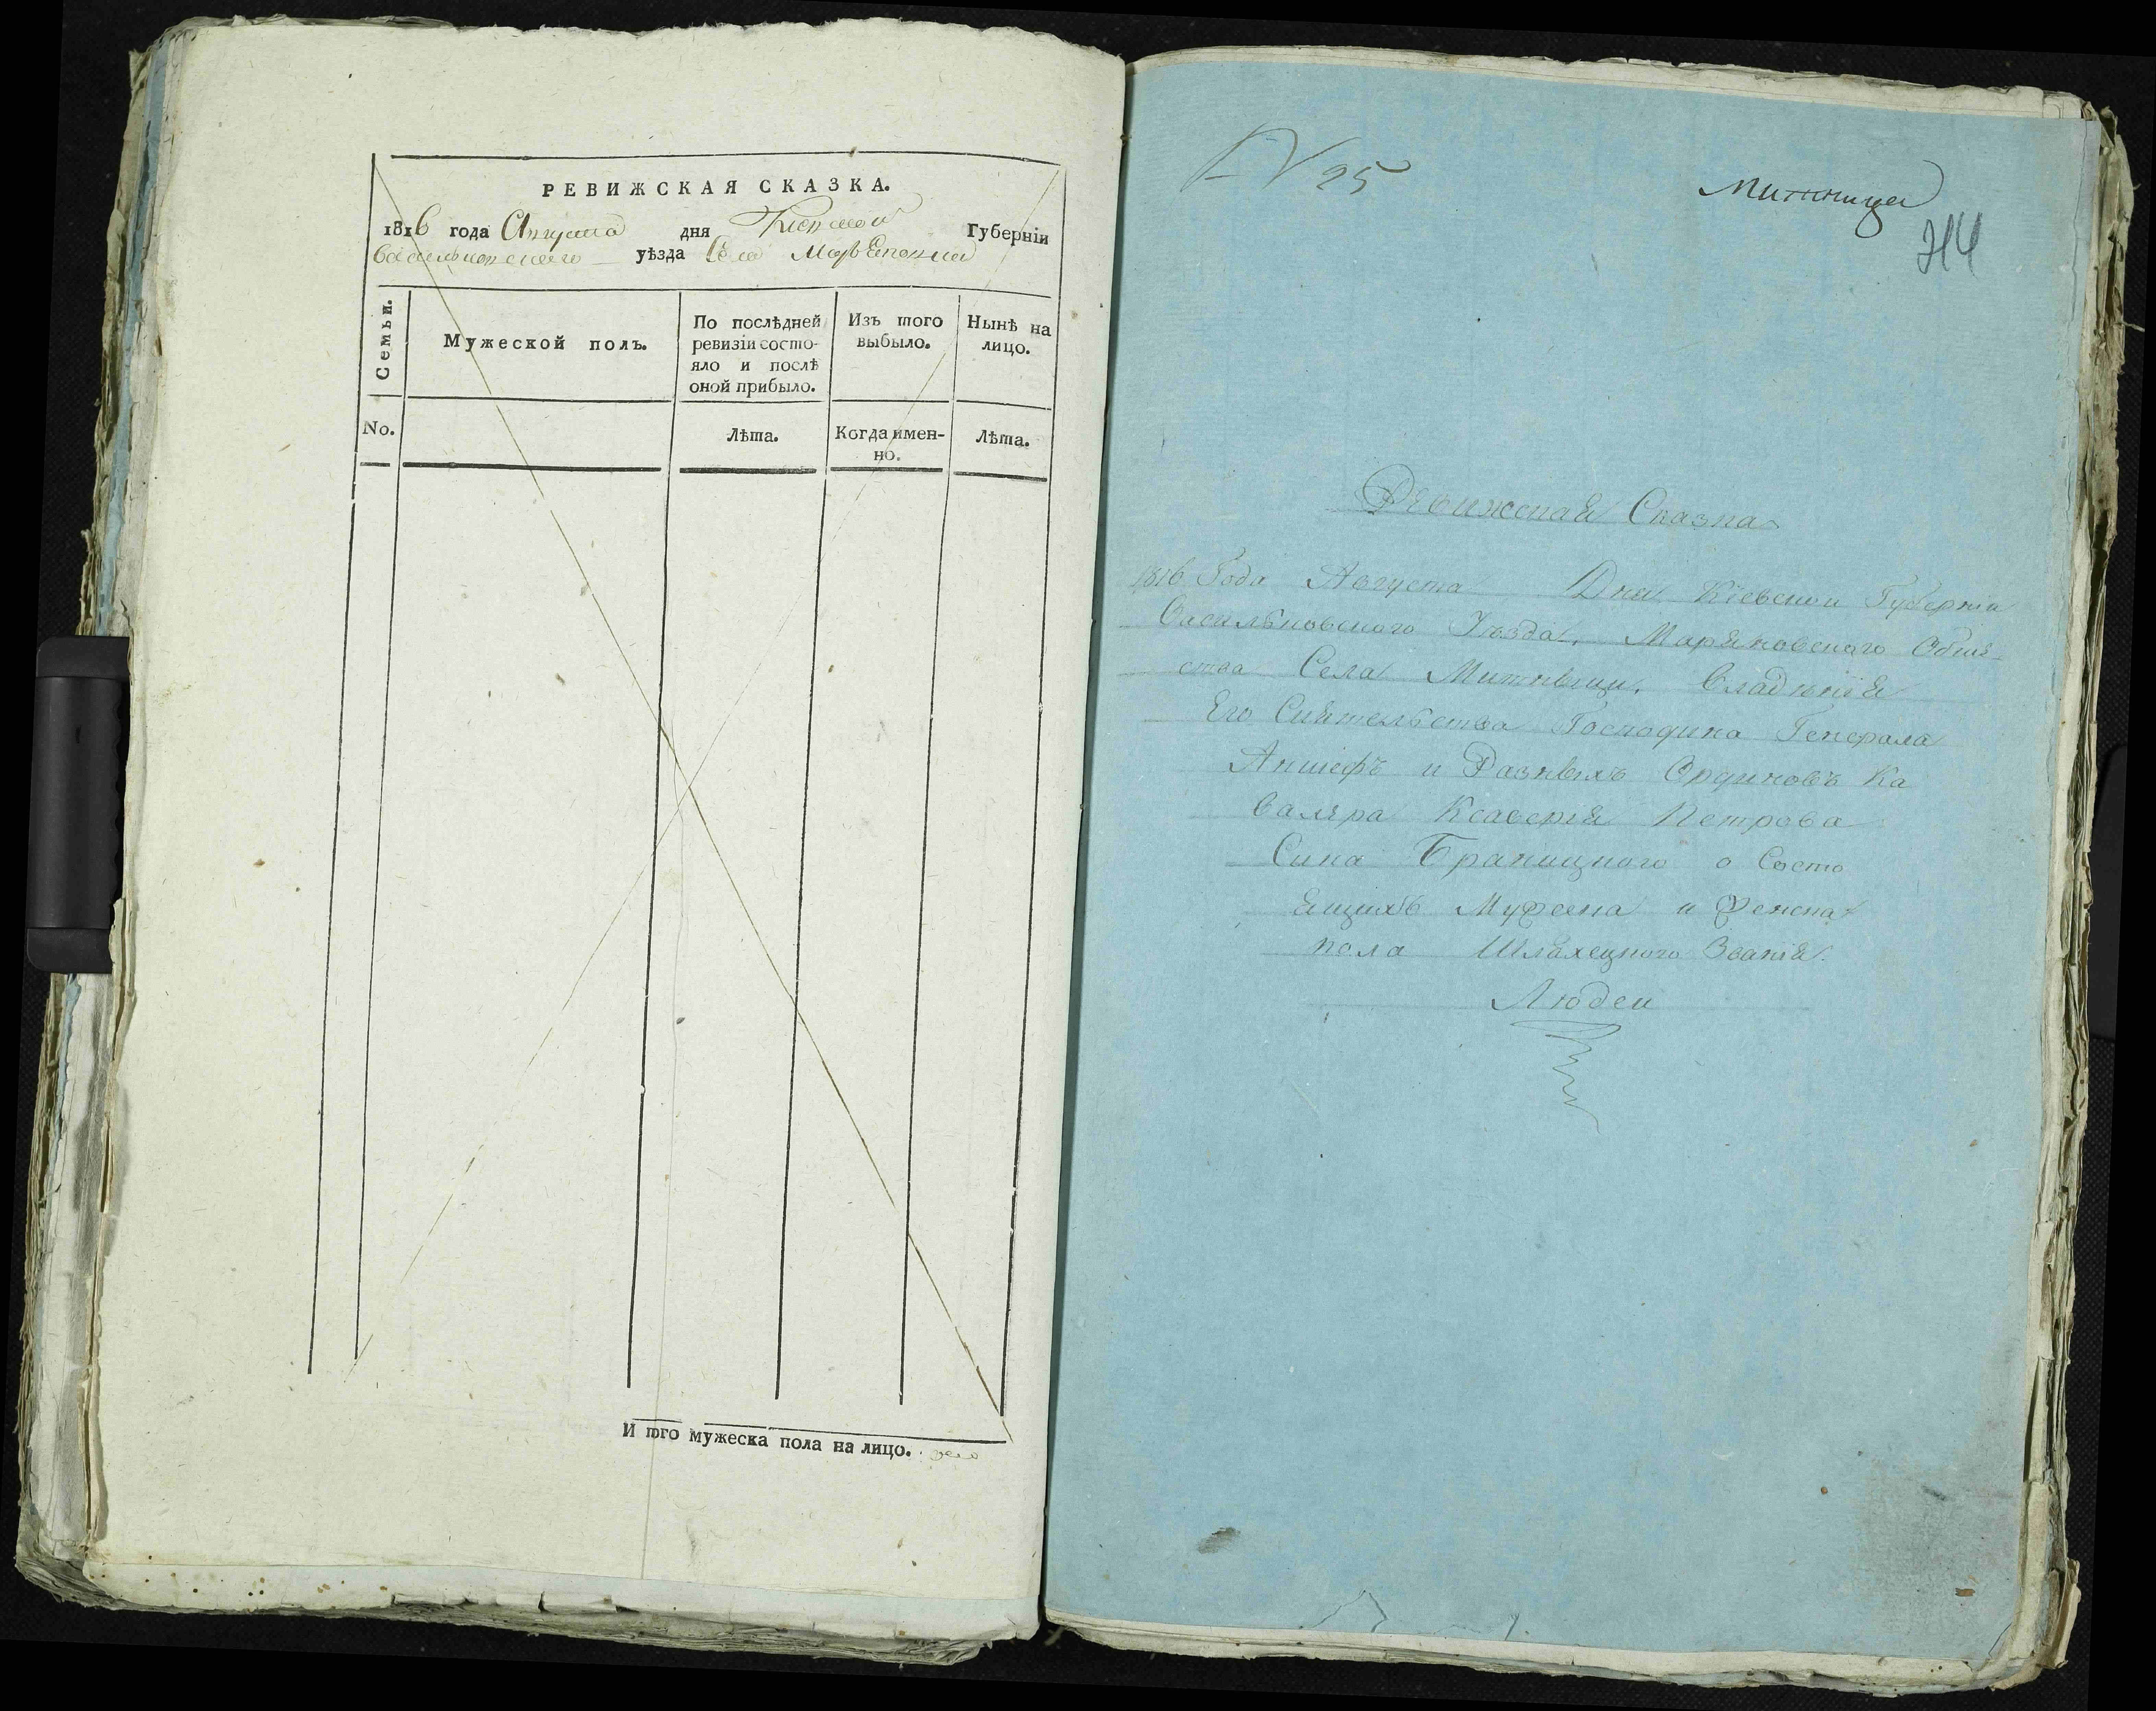 РЕВИЖСКАЯ СКАЗКА.
1816 года Августа дня Киевской Губернїи
Васильковского уѣзда Села
Семьи.
Мужеской полъ.
По послѣдней ревизїи состояло и послѣ оной прибыло.
Изъ того выбыло.
Нынѣ на лицо.
No.
Лѣта.
Когда имен-
но.
Лѣта.
И того мужеска пола на лицо.
N 25
Митница
214
Ревижская Сказка
1816 Года Августа Дня Кїевской Губернїи
Васильковского Уѣзда, Маряновского Обще-
ства Села Митницы, владѣнїя
Его Сиятельства Господина Генерала
Аншефъ и Разныхъ Ординовъ Ка
валера Ксаверїя Петрова
Сина Браницкого о Состо
ящихъ Мужеска и Женска
пола Шляхецкого Званїя
Людей